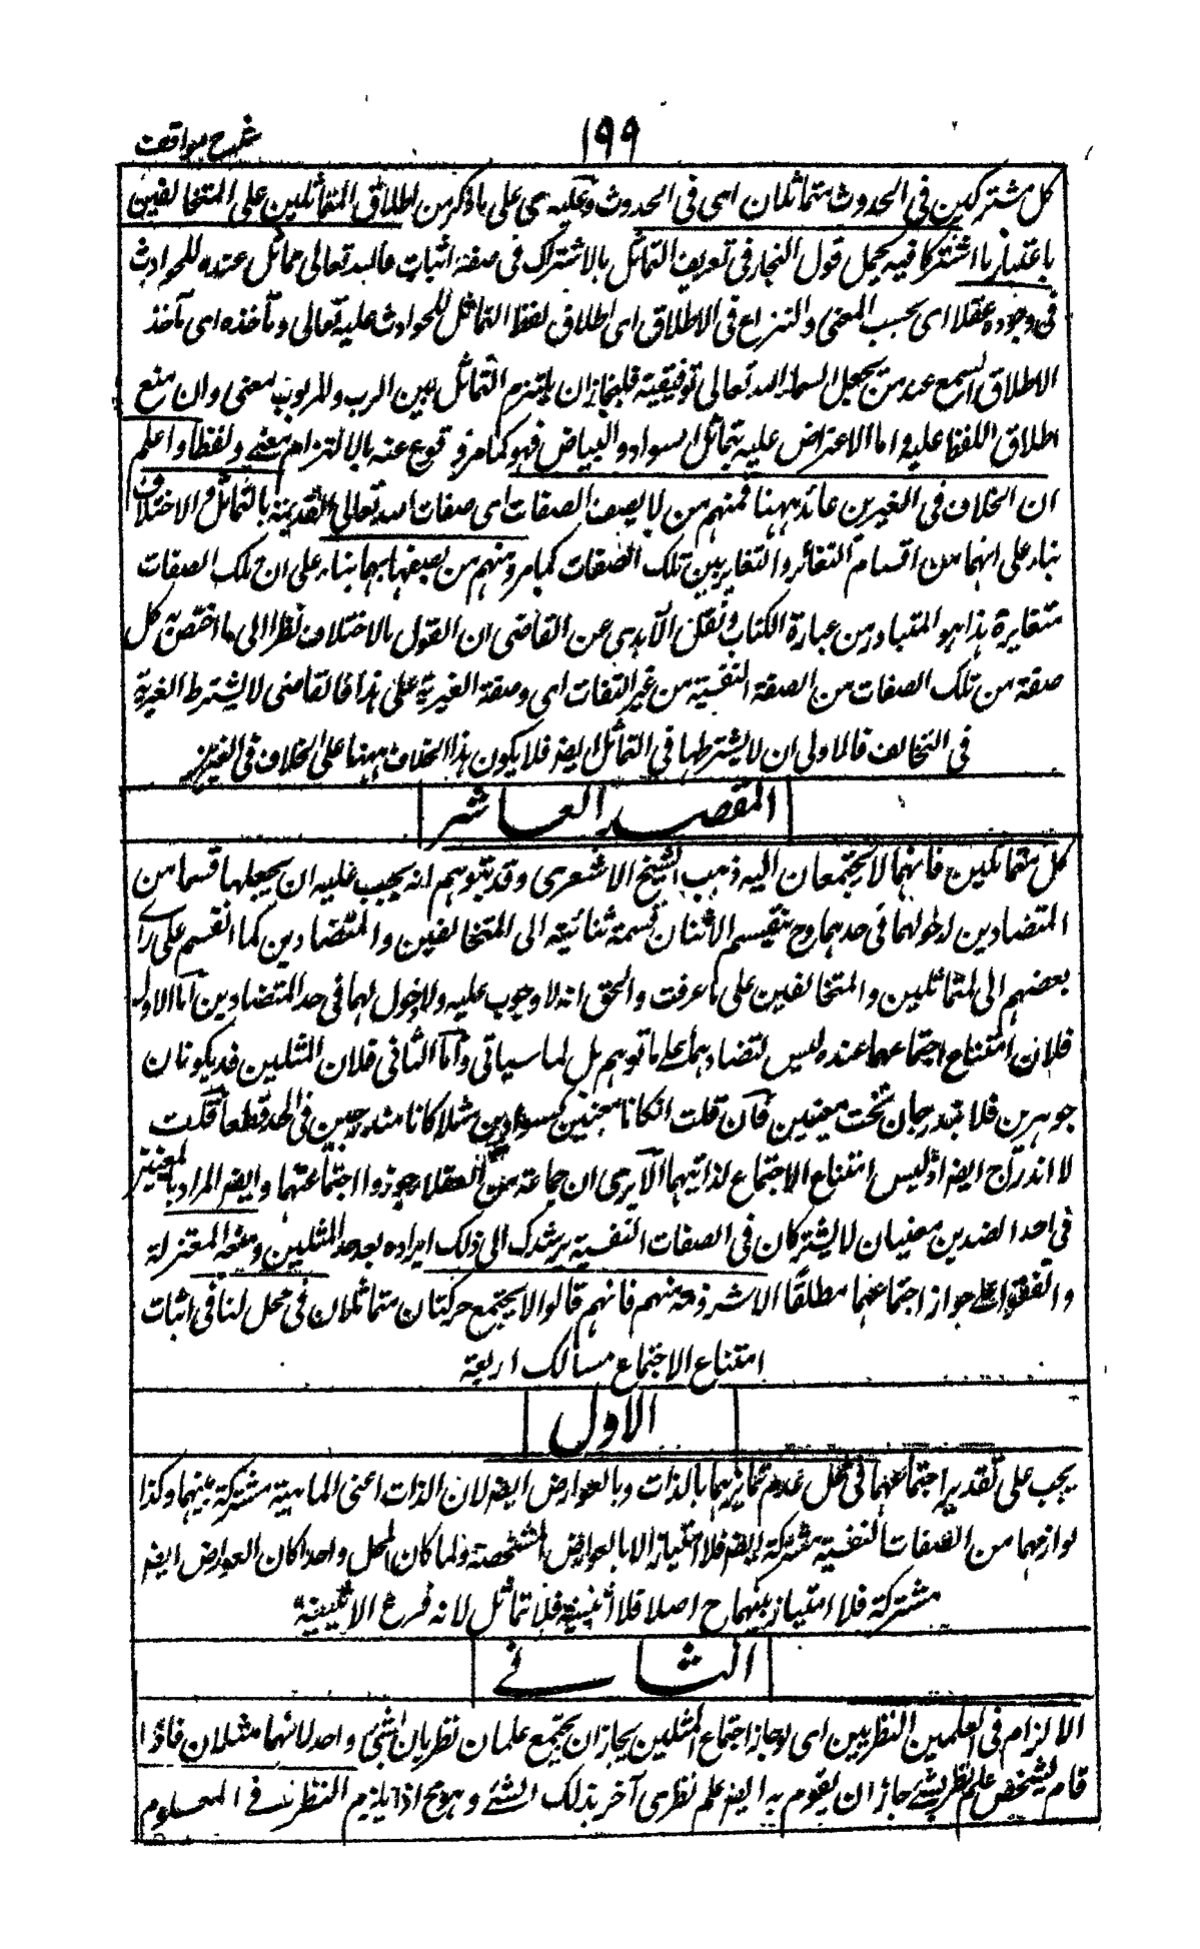 ١٩٩
شرح مواقف
كل مشتركين في الحدوث متماثلان اى فى الحدوث وعليه اى على ما ذكر من اطلاق المتماثلين على المتخالفين
باعتبار ما اشتركا فيه يحمل قول النجار فى تعريف التماثل بالاشتراك فى صفة اثبات فالله تعالى مماثل عنده للحوادث
فى وجوده عقلا اى بحسب المعنى والنزاع فى الاطلاق اى اطلاق لفظ التماثل للحوادث عليه تعالى ومأخذه اى مأخذ
الاطلاق السمع عند من يجعل اسماء الله تعالى توقيفية فللنجار ان يلتزم التماثل بين الرب والمربوب معنى وان منع
اطلاق اللفظ عليه واما الاعتراض عليه بتماثل السواد والبياض فهو كما مر مدفوع عنه بالالتزام معنى ولفظا واعلم
ان الخلاف فى الغيرين عائد ههنا فمنهم من لا يصف الصفات اى صفات الله تعالى القديمة بالتماثل والاختلاف
بناء على انهما من اقسام التغائر والتغاير بين تلك الصفات كما مر ومنهم من يصفها بهما بناء على ان تلك الصفات
متغايرة هذا هو المتبادر من عبارة الكتاب ونقل الآمدى عن القاضى ان القول بالاختلاف نظرا الى ما اختص به كل
صفة من تلك الصفات من الصفة النفسية من غير التفات اى وصفة الغيرية على هذا فالقاضى لا يشترط الغيرية
فى التخالف فالاولى ان لا يشترطها فى التماثل ايضا فلا يكون هذا الخلاف ههنا على الخلاف فى الغيرين
المقصد العاشر
كل متماثلين فانهما لا يجتمعان اليه ذهب الشيخ الاشعرى وقد يتوهم انه يجب عليه ان يجعلها قسما من
المتضادين لدخولهما فى حدهما وح ينقسم الاثنان قسمة ثنائية الى المتخالفين والمتضادين كما انقسم على رأى
بعضهم الى المتماثلين والمتخالفين على ما عرفت والحق انه لا وجوب عليه ولا دخول لهما فى حد المتضادين اما الاول
فلان امتناع اجتماعهما عنده ليس لتضادهما على ما توهم بل لما سياتى واما الثانى فلان المثلين قد يكونان
جوهرين فلا يندرجان تحت معنيين فان قلت اذا كانا معنيين كسوادين مثلا كانا مندرجين فى الحد قطعا قلت
لا اندراج ايضا اذ ليس امتناع الاجتماع لذاتيهما الا يرى ان جماعة من العقلاء جوزوا اجتماعهما وايضا المراد بالمعنيين
فى احد الضدين معنيان لا يشتركان فى الصفات النفسية يرشدك الى ذلك ايراده بعد حد المثلين ومنعه المعتزلة
واتفقوا على جواز اجتماعهما مطلقا الا شرذمة منهم فانهم قالوا لا يجتمع حركتان متماثلان فى محل لنا فى اثبات
امتناع الاجتماع مسالك اربعة
الاول
يجب على تقدير اجتماعهما فى محل عدم تمايزهما بالذات وبالعوارض ايضا لان الذات اعنى الماهية مشتركة بينهما وكذا
لوازمهما من الصفات النفسية مشتركة ايضا فلا امتياز الا بالعوارض المشخصة ولما كان المحل واحدا كان العوارض ايضا
مشتركة فلا امتياز بينهما ح اصلا فلا اثنينية فلا تماثل لانه فرع الاثنينية
الثانى
الالزام فى العلمين النظريين اى لو جاز اجتماع المثلين لجاز ان يجتمع علمان نظريان بشئ واحد لانهما مثلان فاذا
قام لشخص علم نظرى بشئ جاز ان يقوم به ايضا علم نظرى آخر بذلك الشئ وهو مح اذ يلزم النظر فى المعلوم